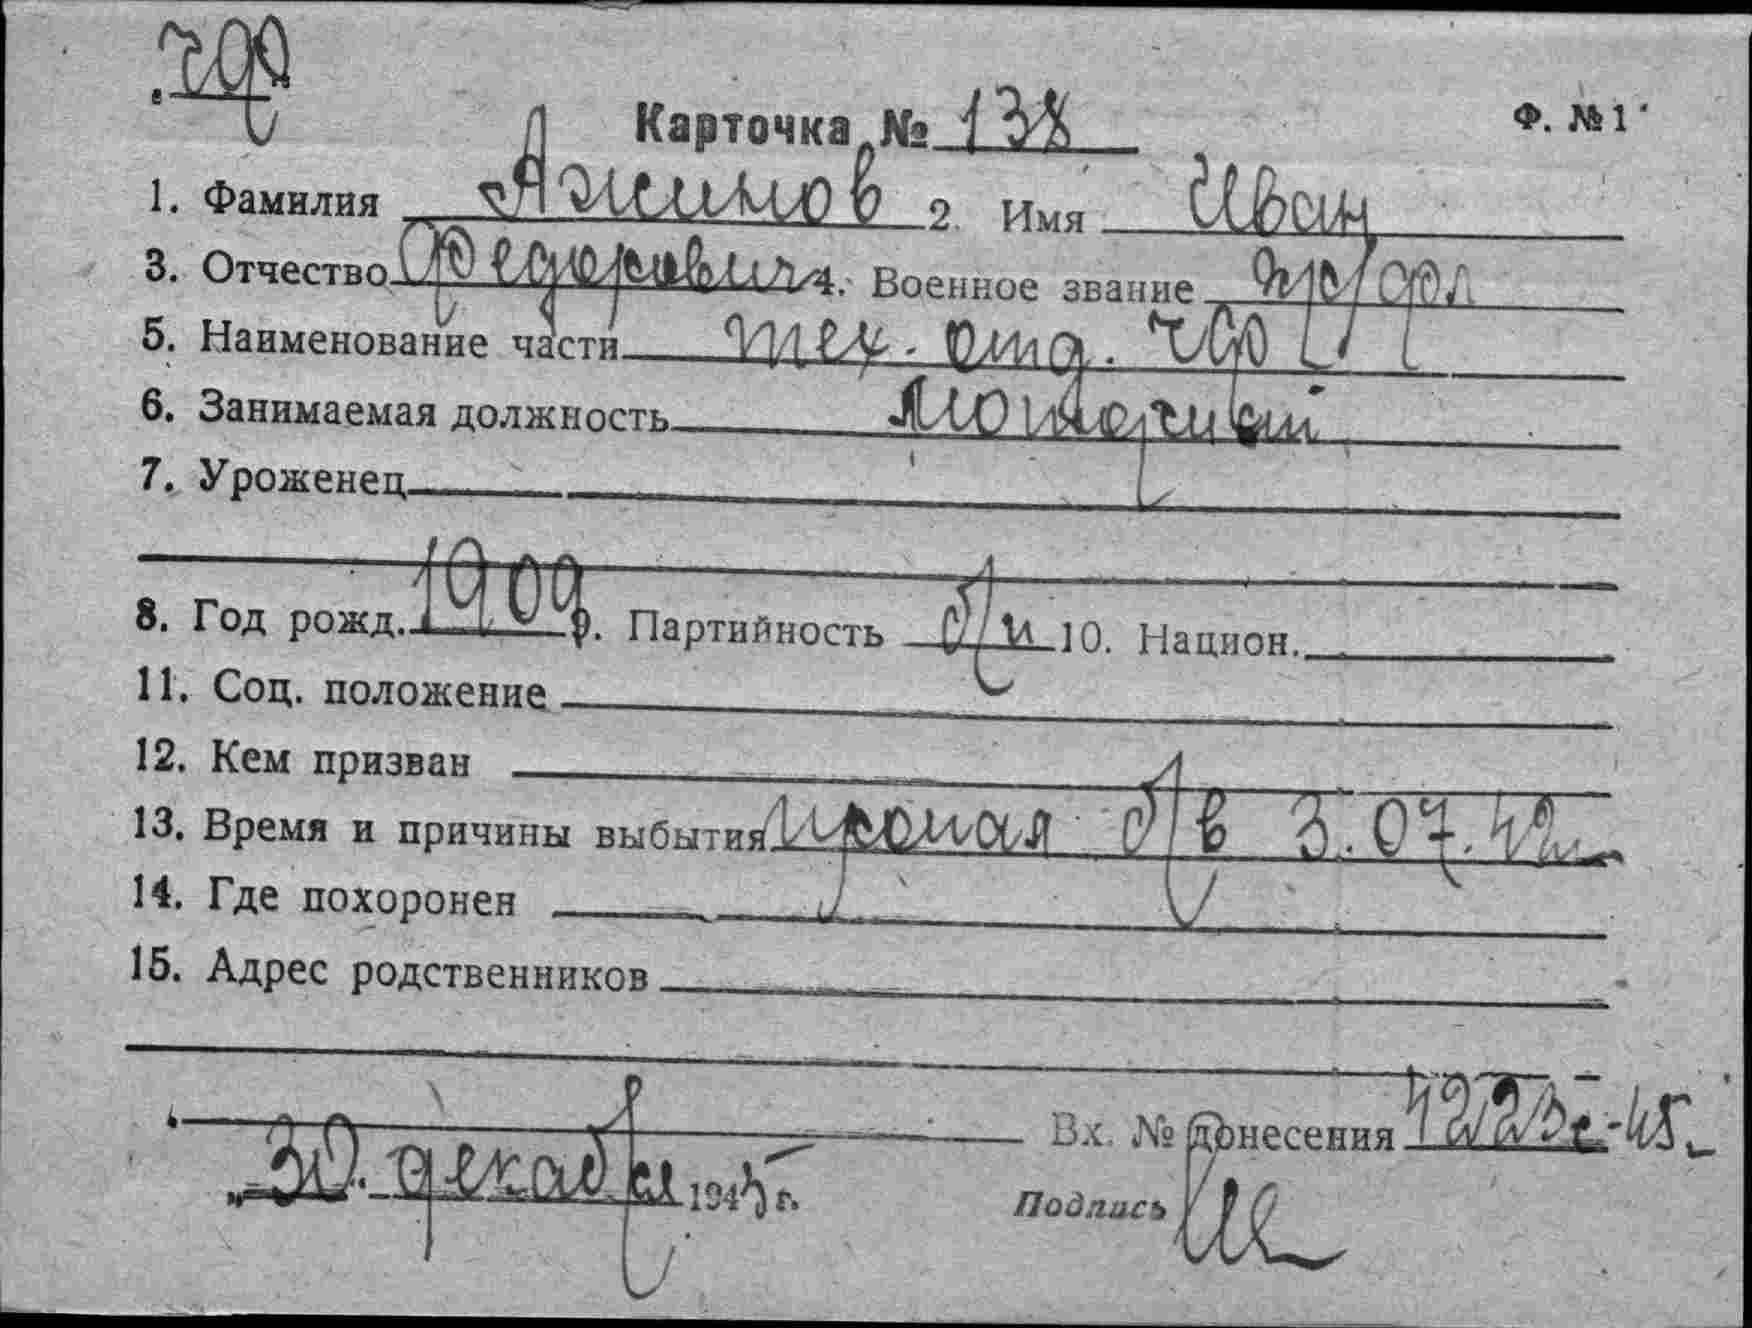 Карточка № 138 Ф. № 1
1. Фамилия Ажимов 2. Имя Иван
3. Отчество Федорович 4. Военное звание
5. Наименование части тех. отд.
6. Занимаемая должность
7. Уроженец
8. Год рожд. 1909 9. Партийность 10. Национ.
11. Соц. положение
12. Кем призван
13. Время и причины выбытия в 3.07.42
14. Где похоронен
15. Адрес родственников
Вх. № донесения
„30" декабря 1945 г. Подпись